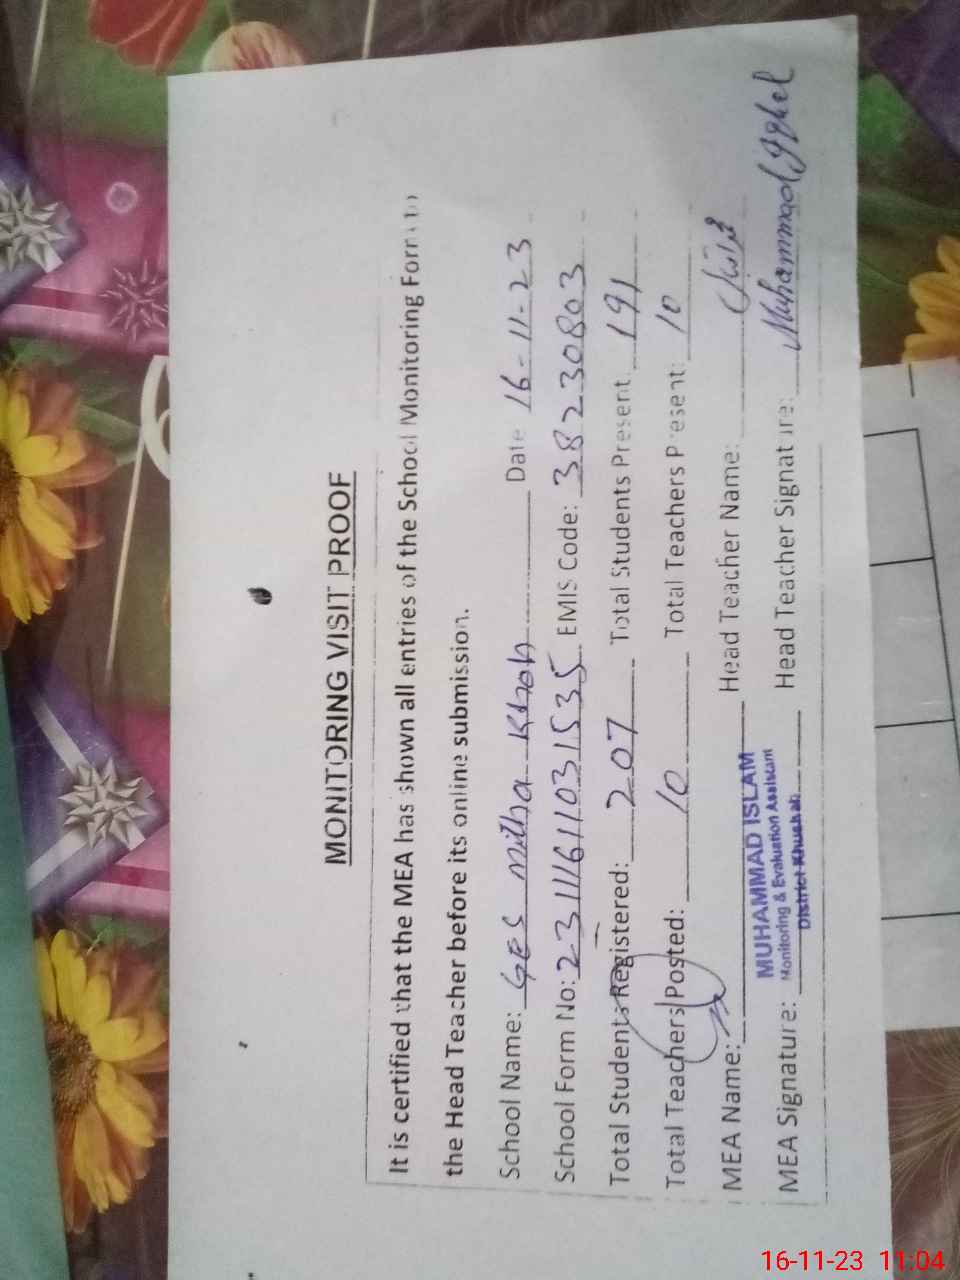 MONITORING VISIT PROOF
It is certified that the MEA has shown all entries of the School Monitoring Form to
the Head Teacher before its online submission.
School Name: GES Mitha Khoh Date 16-11-23
School Form No: 23111611031535 EMIS Code: 38230803
Total Students Registered: 207 Total Students Present 191
Total Teachers Posted: 10 Total Teachers Present: 10
MEA Name: Head Teacher Name:
MUHAMMAD ISLAM
Monitoring & Evaluation Assistant
District Khushab
MEA Signature: Head Teacher Signature: Muhammad Iqbal
16-11-23 11:04